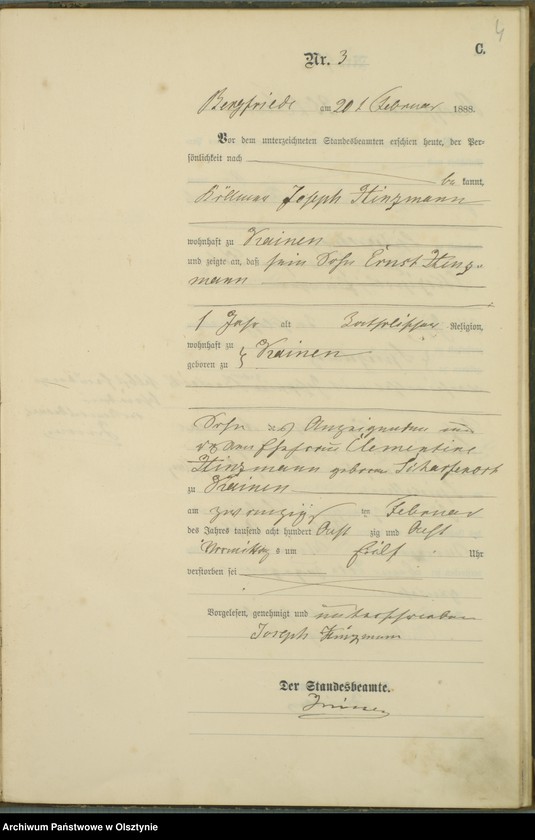 4
C.
Nr. 3
Bergfriede am 20 t Februar 1888.
Vor dem unterzeichneten Standesbeamten erschien heute, der Per-
sönlichkeit nach
be kannt,
Joseph Hinzmann
wohnhaft zu Krainen
und zeigte an, daß sein Sohn Ernst Hinz-
mann
1 Jahr alt katholischer Religion,
wohnhaft zu
geboren zu } Krainen
Sohn des Anzeigenden und
Ehefrau Clementine
Hinzmann geborene Scharfenort
zu Krainen
am zwanzigsten Februar
des Jahres tausend acht hundert Acht zig und Acht
Vormittags um Uhr
verstorben sei
Vorgelesen, genehmigt und unterschrieben
Joseph Hinzmann
Der Standesbeamte.
Archiwum Państwowe w Olsztynie